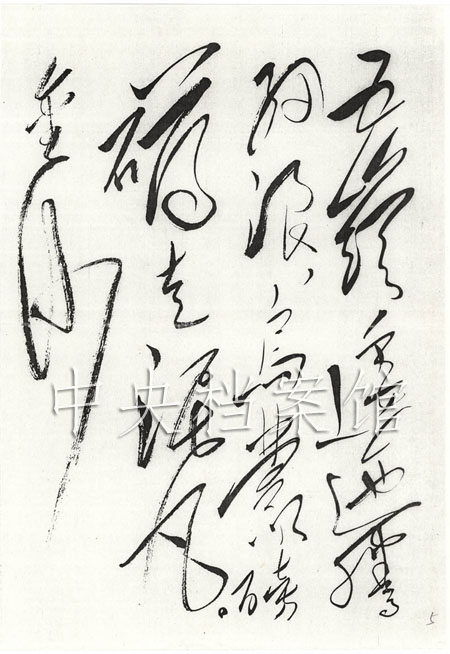 五嶺逶迤騰
細浪,烏蒙磅
礴走泥丸。
金沙
中央档案馆
5